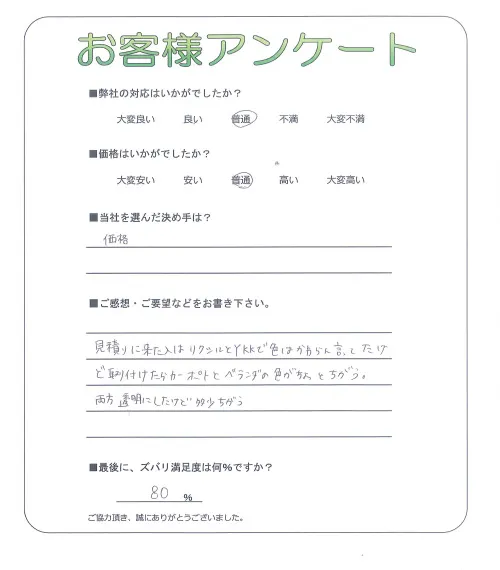 お客様アンケート
■弊社の対応はいかがでしたか？
大変良い 良い 普通 不満 大変不満
■価格はいかがでしたか？
大変安い 安い 普通 高い 大変高い
■当社を選んだ決め手は？
価格
■ご感想・ご要望などをお書き下さい。
見積りに来た人はリクシルとYKKで色はかわらん言ってたけ
ど取付けたらカーポートとベランダの色がちょっとちがう。
両方透明にしたけど多少ちがう
■最後に、ズバリ満足度は何%ですか？
80 %
ご協力頂き、誠にありがとうございました。